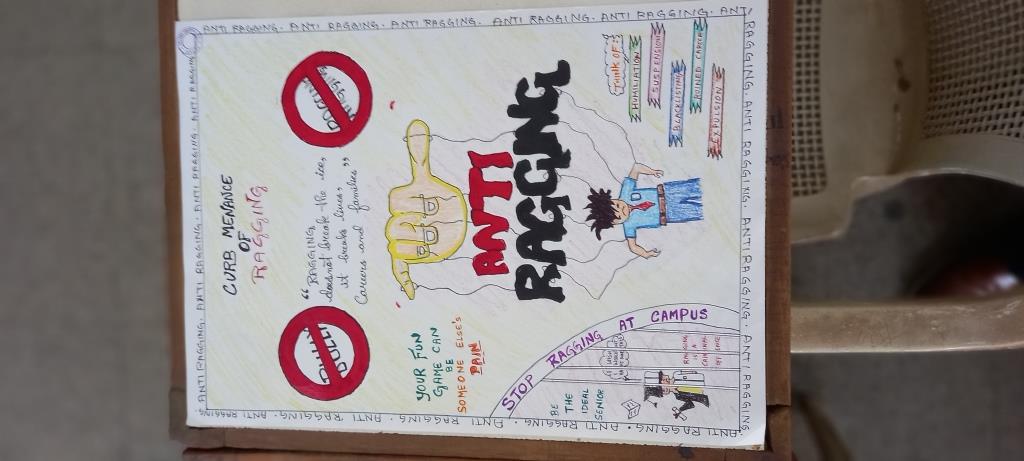 ANTI RAGGING. ANTI RAGGING. ANTI RAGGING. ANTI RAGGING. ANTI RAGGING
CURB MENANCE
OF
RAGGING
BULLY
RAGGING
“ RAGGING
doesnot break the ice,
it breaks lives,
Careers and families ”
YOUR FUN
GAME CAN
BE
SOMEONE ELSE'S
PAIN
ANTI
RAGGING
STOP RAGGING AT CAMPUS
BE
THE
IDEAL
SENIOR
RAGGING
IS A
CRIMINAL
OFFENCE
THINK OF:
HUMILIATION
SUSPENSION
BLACKLISTING
RUINED CAREER
EXPULSION
ANTI RAGGING. ANTI RAGGING. ANTI RAGGING. ANTI RAGGING. ANTI RAGGING